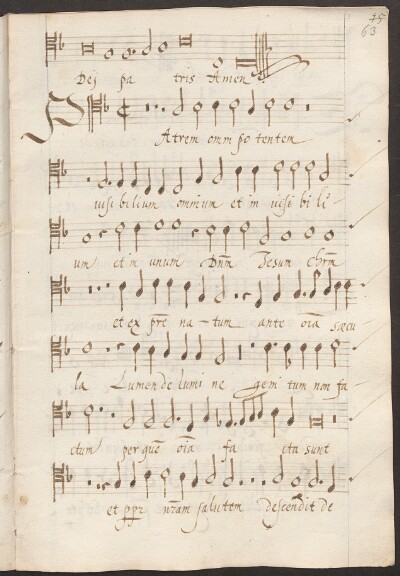 75
63
Dei pa tris Amen
Atrem omni po tentem
visi bilium omnium et in visi bi li
um et in unum Dnm Jesum chrm
et ex pre na - tum ante oia sæcu
la Lumen de lumi ne geni tum non fa
ctum per que oia fa cta sunt
et ppr nram salutem descendit de